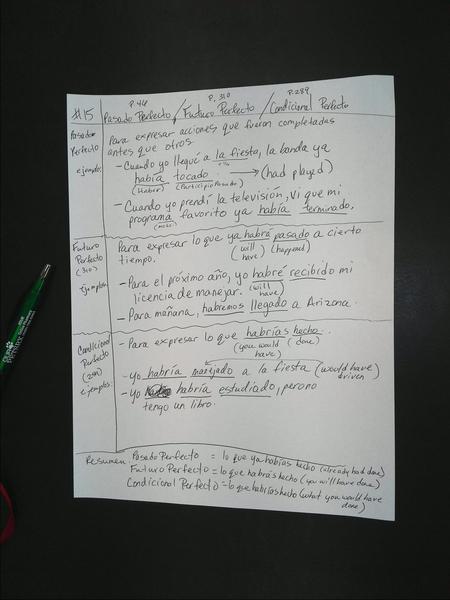 P.46 P. 310 P.289
#15 Pasado Perfecto / Futuro Perfecto / Condicional Perfecto
Pasado Perfecto ejemplos:
Para expresar acciones que fueron completadas
antes que otros.
- Cuando yo llegué a la fiesta, la banda ya
había tocado. → (had played)
(Haber) (Participio Pasado)
- Cuando yo prendí la televisión, vi que mi
programa favorito ya había terminado.
Futuro Perfecto (310) Ejemplos:
Para expresar lo que ya habrá pasado a cierto
tiempo. (will have) (happened)
- Para el próximo año, yo habré recibido mi
licencia de manejar. (will have)
- Para mañana, habremos llegado a Arizona.
Condicional Perfecto (289) ejemplos:
- Para expresar lo que habrías hecho.
(you would have) (done)
- Yo habría manejado a la fiesta (would have
driven)
- Yo habría estudiado, pero no
tengo un libro.
Resumen: Pasado Perfecto = lo que ya habías hecho (already had done)
Futuro Perfecto = lo que habrás hecho (you will have done)
Condicional Perfecto = lo que habrías hecho (what you would have
done)